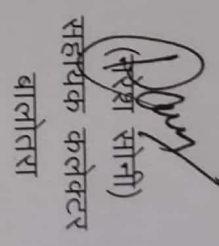 (नरेश सोनी)
सहायक कलेक्टर
बालोतरा